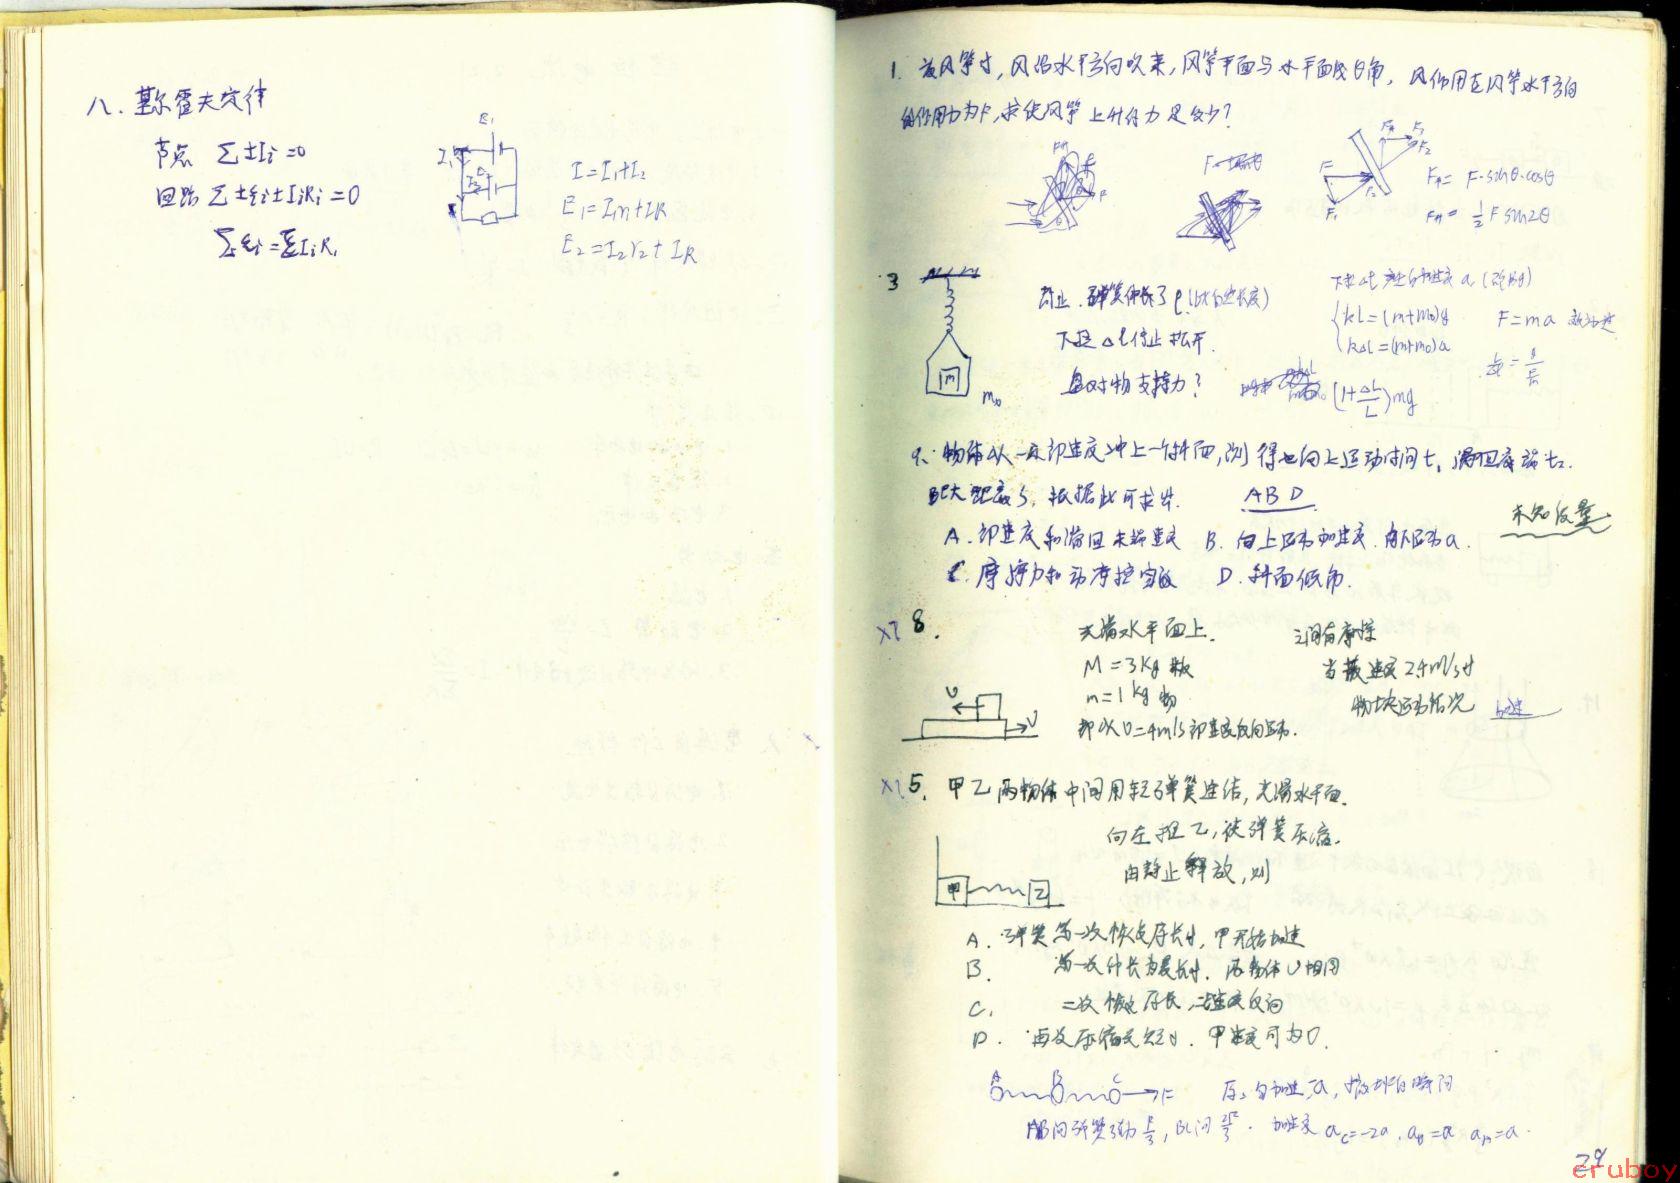 八.基尔霍夫定律
节点 ∑±Ii=0
回路 ∑±εi±IiRi=0
∑εi=∑IiRi
E1
I1
I=I1+I2
E1=I1r1+IR
E2=I2r2+IR
1. 放风筝时,风沿水平方向吹来,风筝平面与水平面成θ角,风作用在风筝水平方向
的作用力为F,求使风筝上升的力是多少?
F升= F·sinθ·cosθ
F升= ½F sin2θ
3
静止.弹簧伸长了l(比自然长度)
下拉△l停止松开.
盘对物支持力?
m
m0
kl=(m+m0)g
k△l=(m+m0)a
F=ma
(1+△L/L)mg
9. 物体以一定初速度冲上一个斜面,测得它向上运动时间t1 滑回底端t2.
最大距离S,根据此可求出. ABD
未知质量
A.初速度和滑回末端速度 B.向上运动加速度.向下运动a.
C.摩擦力和动摩擦实数 D.斜面倾角.
×? 8.
光滑水平面上. 之间有摩擦
M=3kg 板 当板速度2.4m/s时
m=1kg 物 物块运动情况 加速
都以υ=4m/s初速度反向运动.
υ
υ
×? 5. 甲乙两物体中间用轻弹簧连结,光滑水平面.
向左推乙,使弹簧压缩.
由静止释放,则
甲 乙
A.弹簧第一次恢复原长时,甲开始加速
B. 第一次伸长为最长时.两物体υ相同
C. 二次恢复原长,二速度反向
D. 再次压缩最短时.甲速度可为0.
A B C F
AB间弹簧弹力F/3,BC间2F/3. 加速度 aC=-2a.aB=a aA=a.
29
cruboy